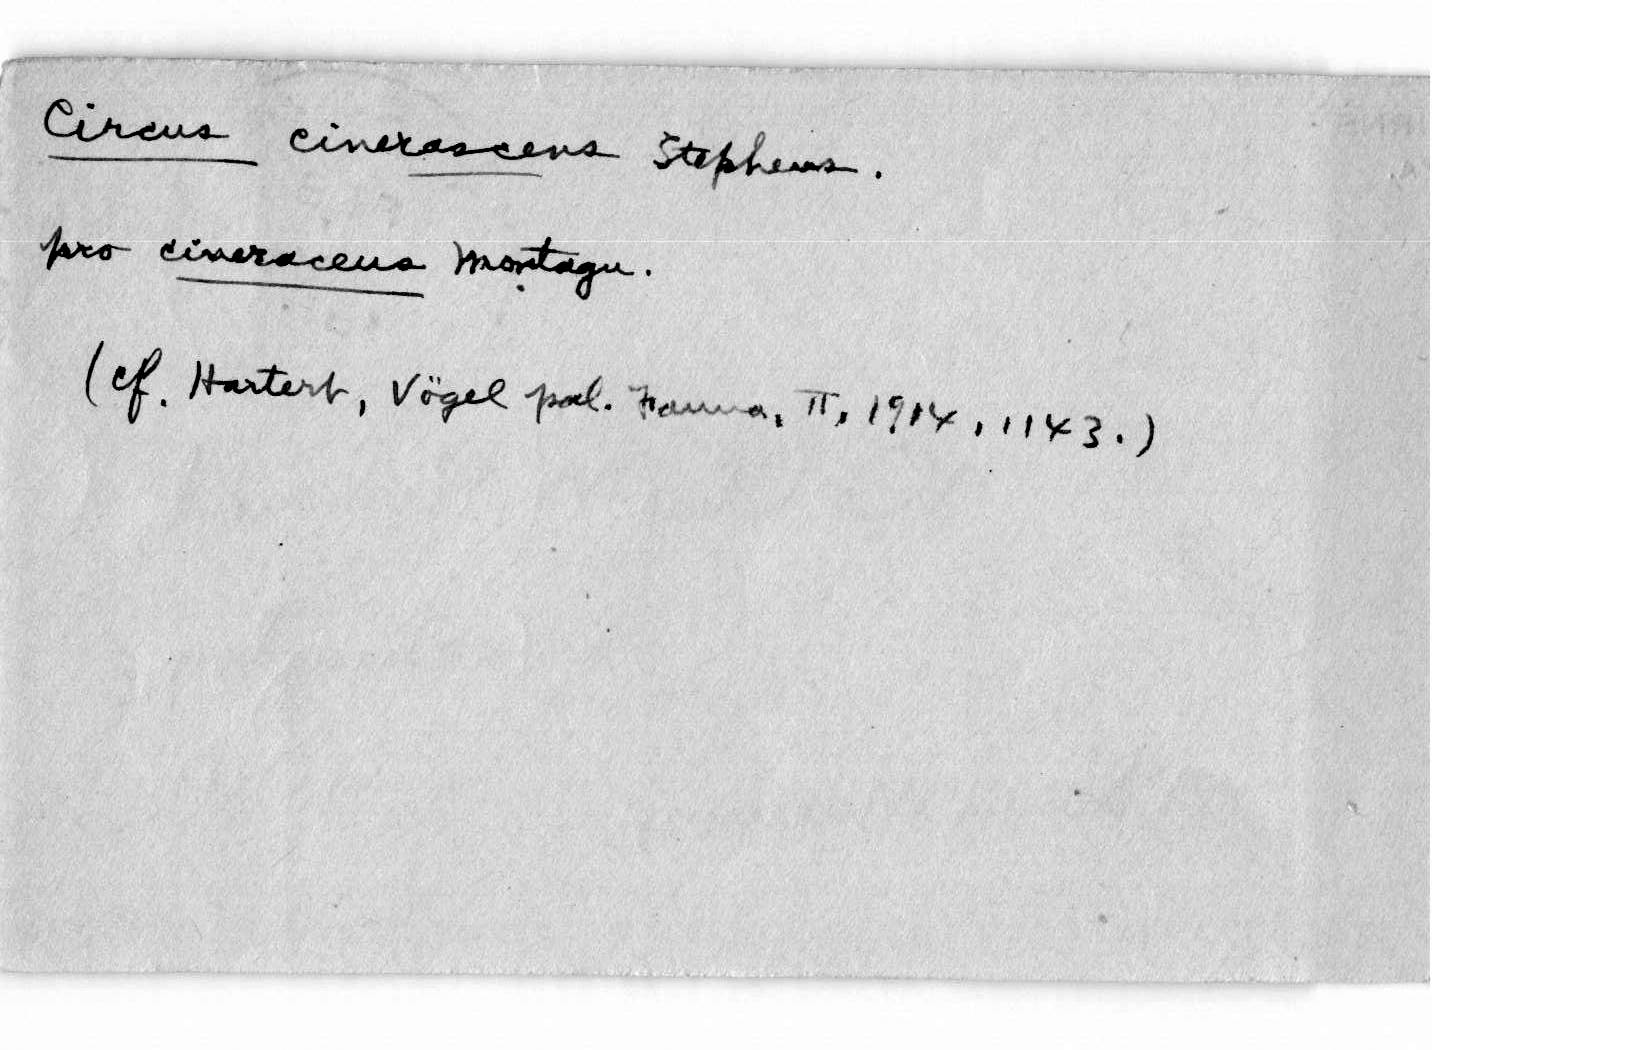 Circus cinerascens Stephens.
pro cineraceus Montagu.
(cf. Hartert, Vögel pal. Fauna, II, 1914, 1143.)